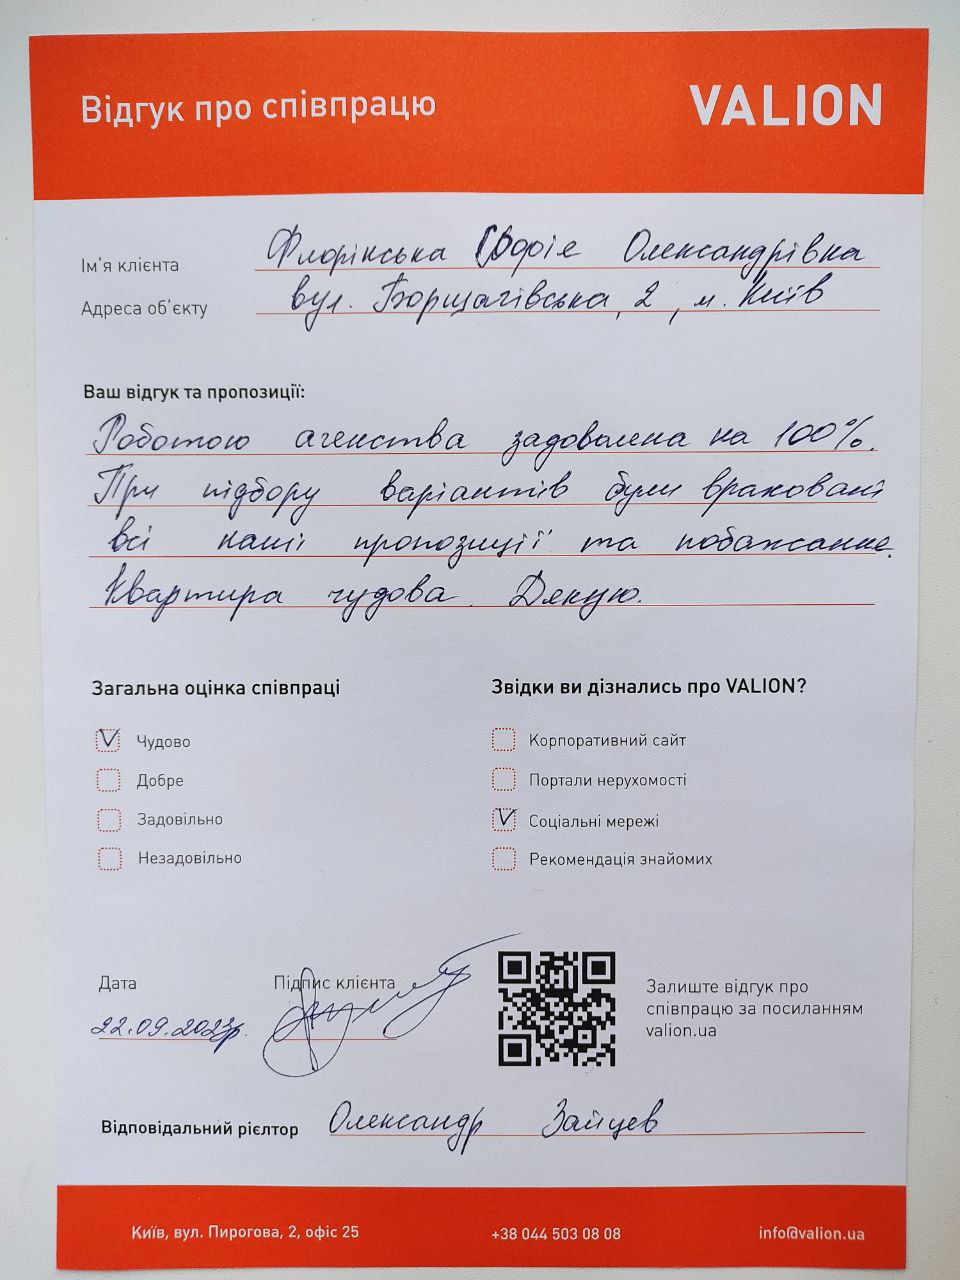 Відгук про співпрацю
VALION
Ім'я клієнта Флорінська Олександрівна
Адреса об'єкту вул. Борщагівська, 2, м. Київ
Ваш відгук та пропозиції:
Роботою агенства задоволена на 100%.
При підбору варіантів були враховані
всі наші пропозиції та побажання.
Квартира чудова. Дякую.
Загальна оцінка співпраці
V Чудово
Добре
Задовільно
Незадовільно
Звідки ви дізнались про VALION?
Корпоративний сайт
Портали нерухомості
V Соціальні мережі
Рекомендація знайомих
Дата
22.09.2023р.
Підпис клієнта
Залиште відгук про
співпрацю за посиланням
valion.ua
Відповідальний рієлтор Олександр Зайцев
Київ, вул. Пирогова, 2, офіс 25
+38 044 503 08 08
info@valion.ua